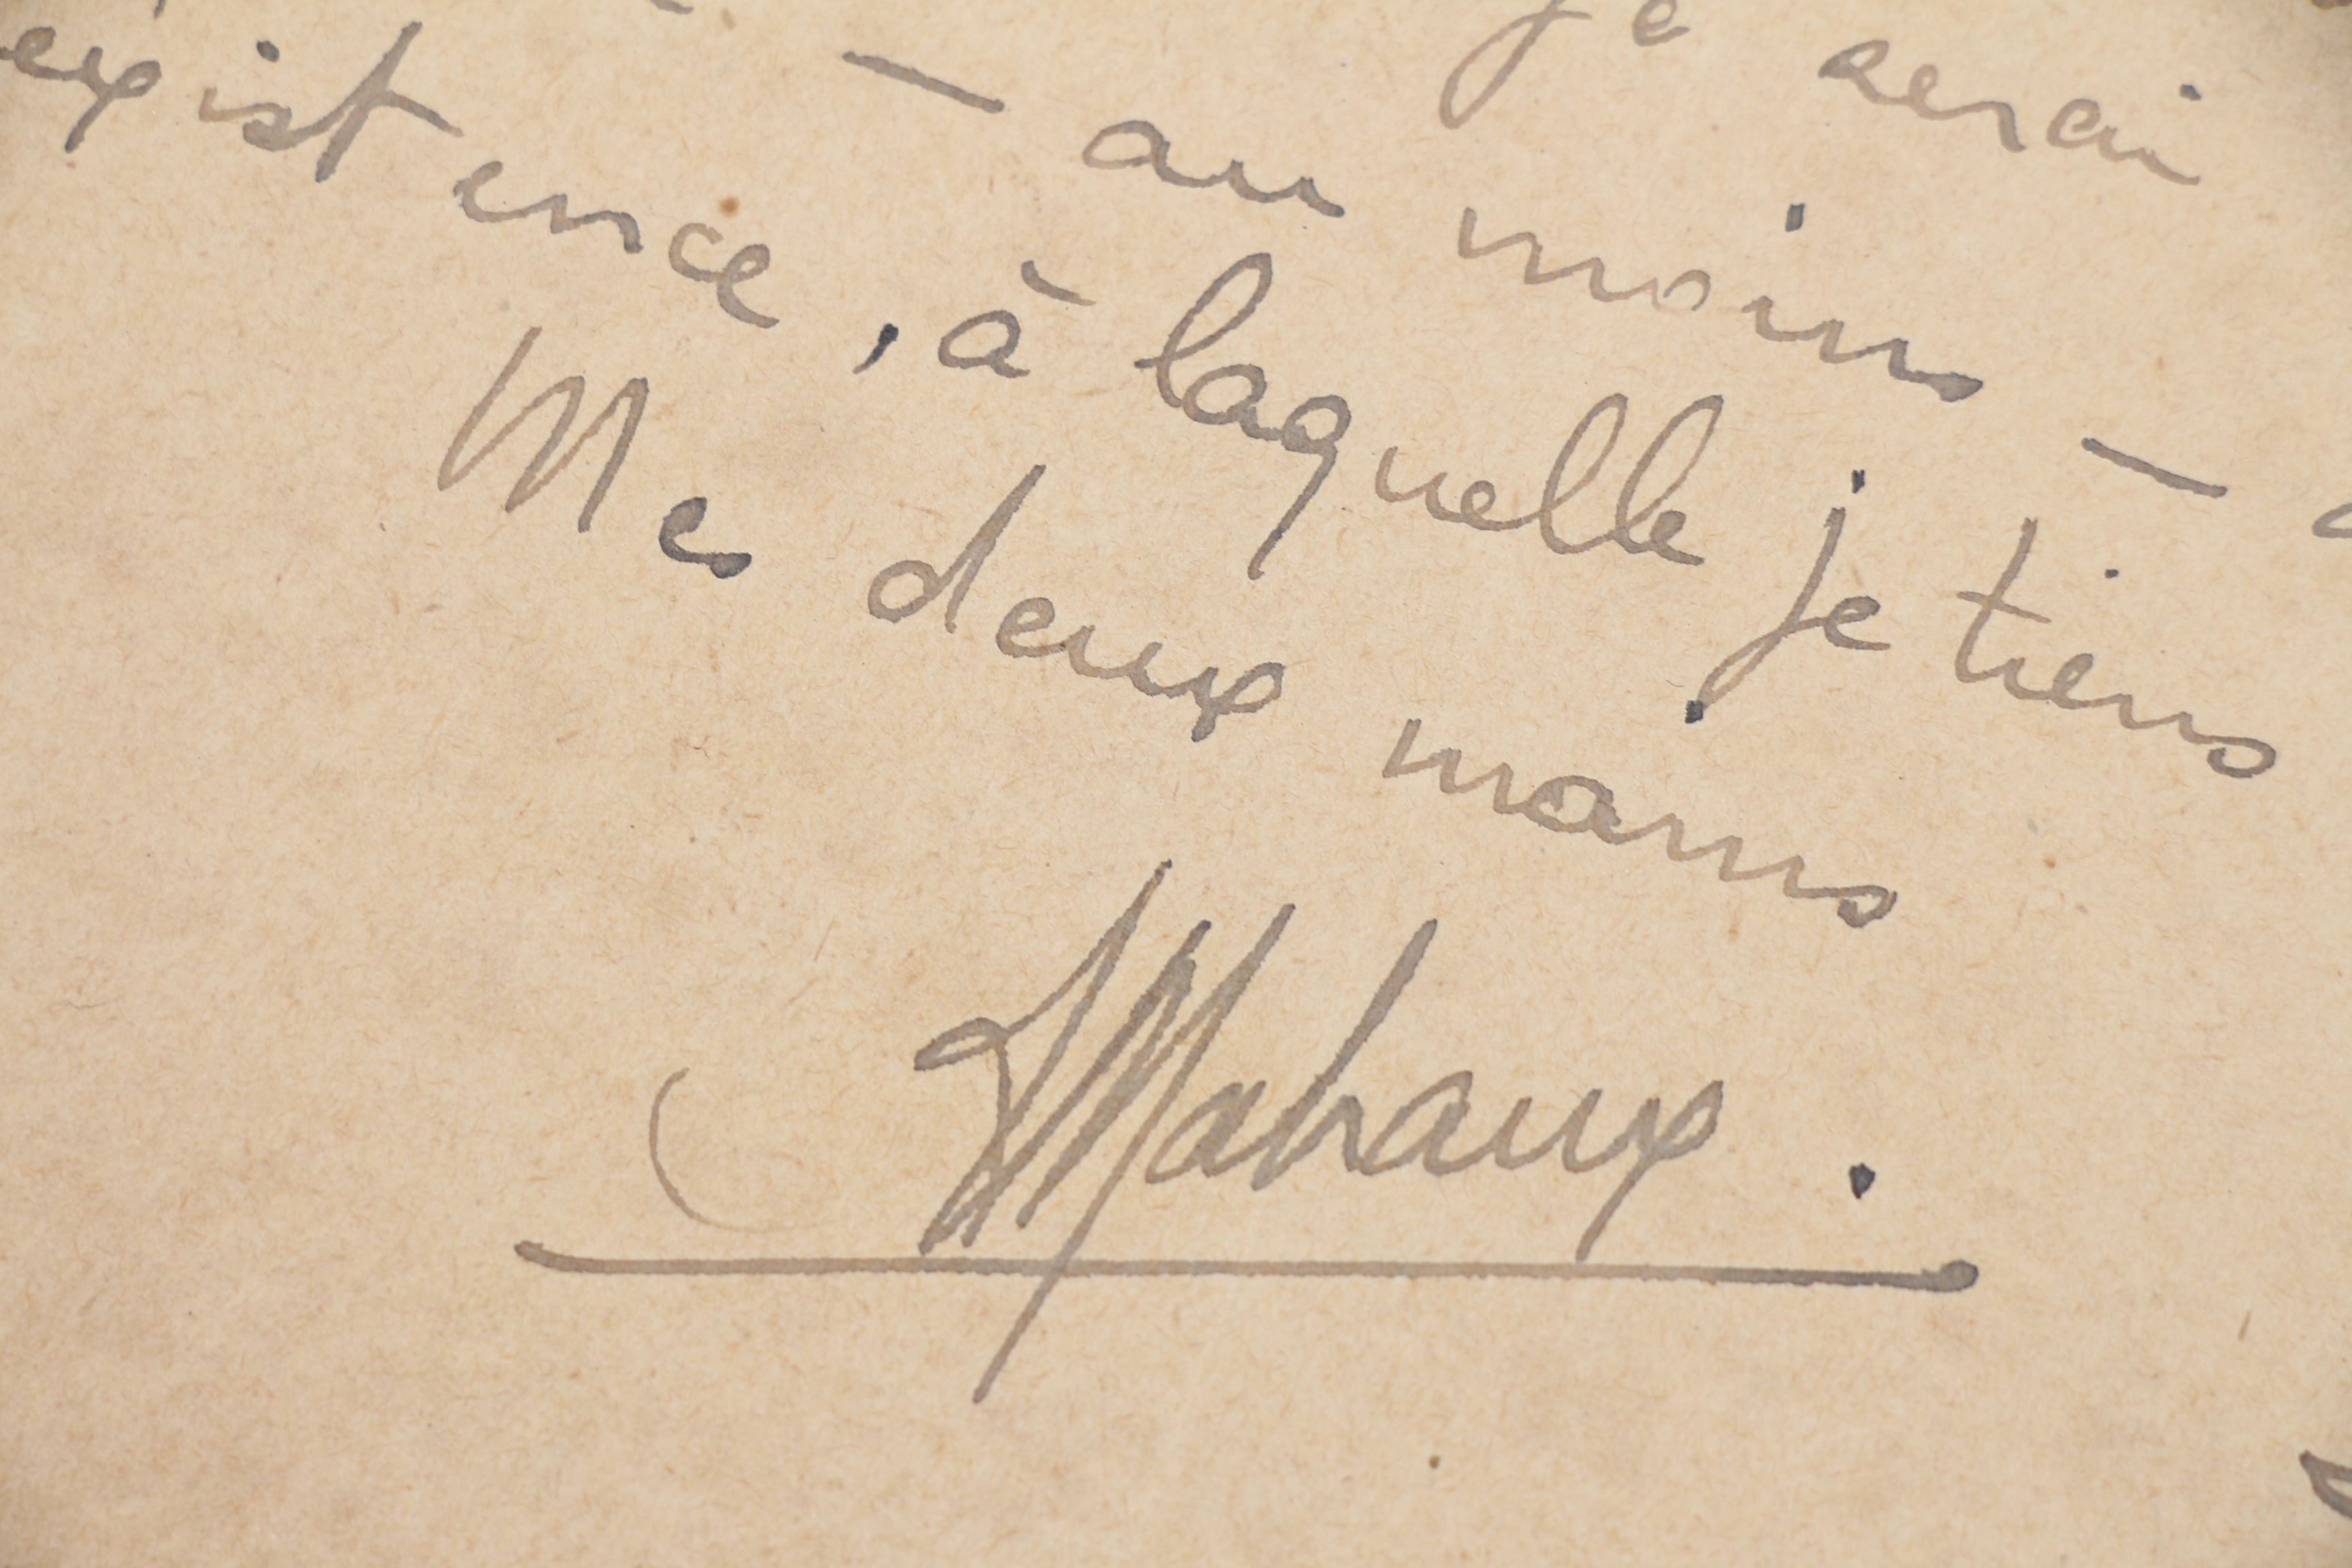 je serai
— au moins —
existence, à laquelle je tiens
Mes deux mains
Mahaux.